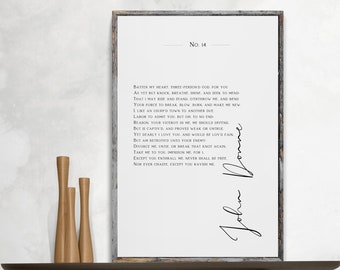 No. 14
Batter my heart, three-personed God for you
As yet but knock, breathe, shine, and seek to mend.
That I may rise and stand, o'erthrow me, and bend
Your force to break, blow, burn, and make me new.
I, like an usurp'd town to another due,
Labor to admit you, but oh, to no end.
Reason, your viceroy in me, me should defend,
But is captiv'd, and proves weak or untrue.
Yet dearly I love you, and would be lov'd fain,
But am betrothed unto your enemy:
Divorce me, untie, or break that knot again,
Take me to you, imprison me, for I,
Except you enthrall me, never shall be free,
Nor ever chaste, except you ravish me.
John Donne